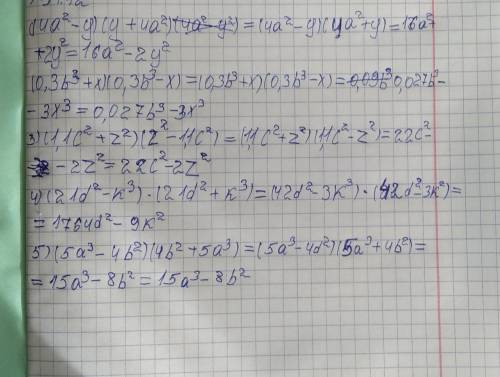 (4a²-y)(y+4a²)(4a²-y²)=(4a²-y)(4a²+y)=16a²
+2y²=16a²-2y²
(0,3b³+x)(0,3b³-x)=(0,3b³+x)(0,3b³-x)=0,09b³0,027b³-
-3x³=0,027b³-3x³
3)(1,1c²+z²)(z²-1,1c²)=(1,1c²+z²)(1,1c²-z²)=22c²-
-2z²=22c²-2z²
4)(21d²-к³)·(21d²+к³)=(42d²-3к³)·(42d²-3к²)=
=1764d²-9к²
5)(5a³-4b²)(4b²+5a³)=(5a³-4d²)(5a³+4b²)=
=15a³-8b²=15a³-8b²